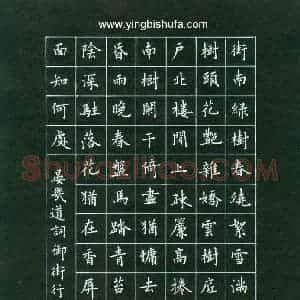 www.yingbishufa.com
街南綠樹春繞絮雪滿
樹頭花艷雜嬌雲樹底
戶北樓閒上疎簾高捲
南樹闌干倚盡猶慵去
昏雨晚春盤馬踏青苔
陰深駐落花猶在香屏
面知何處
晏幾道詞御街行